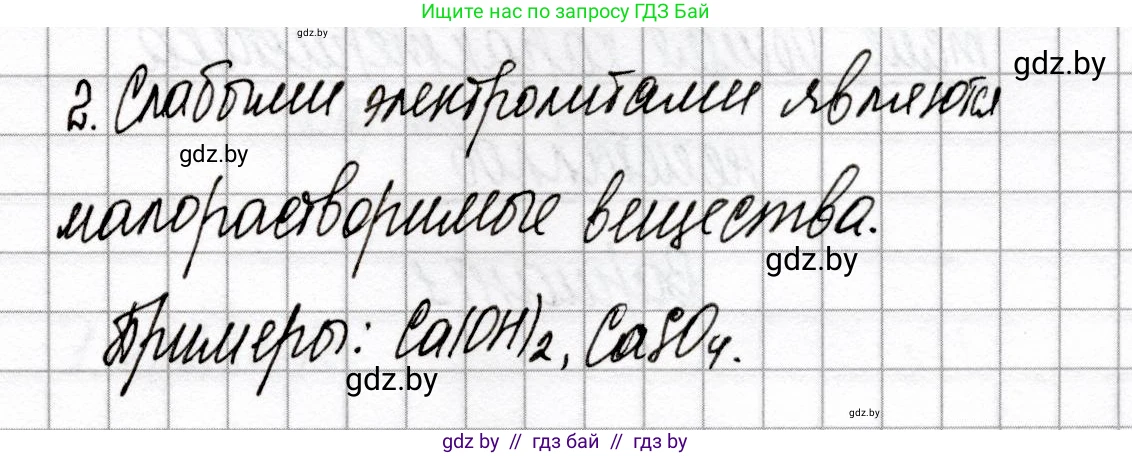 Ищите нас по запросу ГДЗ Бай
gdz.by
gdz.by
2. Слабыми электролитами являются
gdz.by
малорастворимые вещества.
gdz.by
Примеры: Ca(OH)2, CaSO4.
gdz.by
gdz.by
gdz.by // гдз бай // гдз by